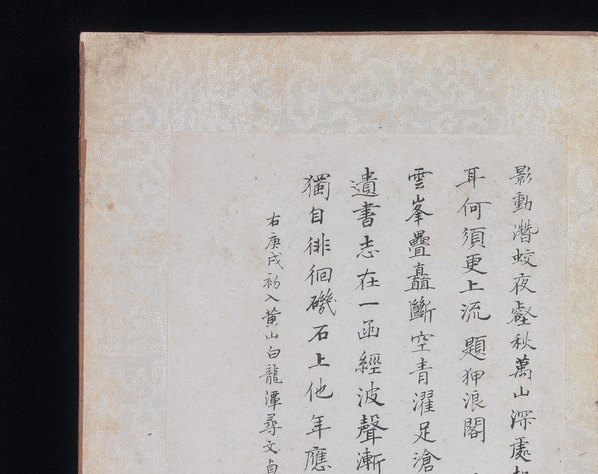 影動潛蛟夜壑秋萬山深處
耳何須更上流 題狎浪閣
雲峯疊矗斷空青濯足滄
遺書志在一函經波聲漸
獨自徘徊磯石上他年應
右庚戌初入黃山白龍潭尋文貞